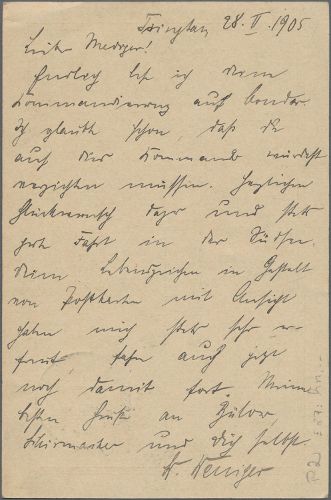 Tsingtau, 28. II. 1905
Lieber Mediger!
Endlich las ich deine
Kommandierung auf Condor.
Ich glaubte schon, daß du
auf das Kommando würdest
verzichten müssen. Herzlichen
Glückwunsch dazu und stets
gute Fahrt in der Südsee.
Deine Lebenszeichen in Gestalt
von Postkarten mit Ansicht
haben mich stets sehr er-
freut, fahre auch jetzt
noch damit fort. Meine
besten Grüße an Bülow,
Schirmacher und dich selbst.